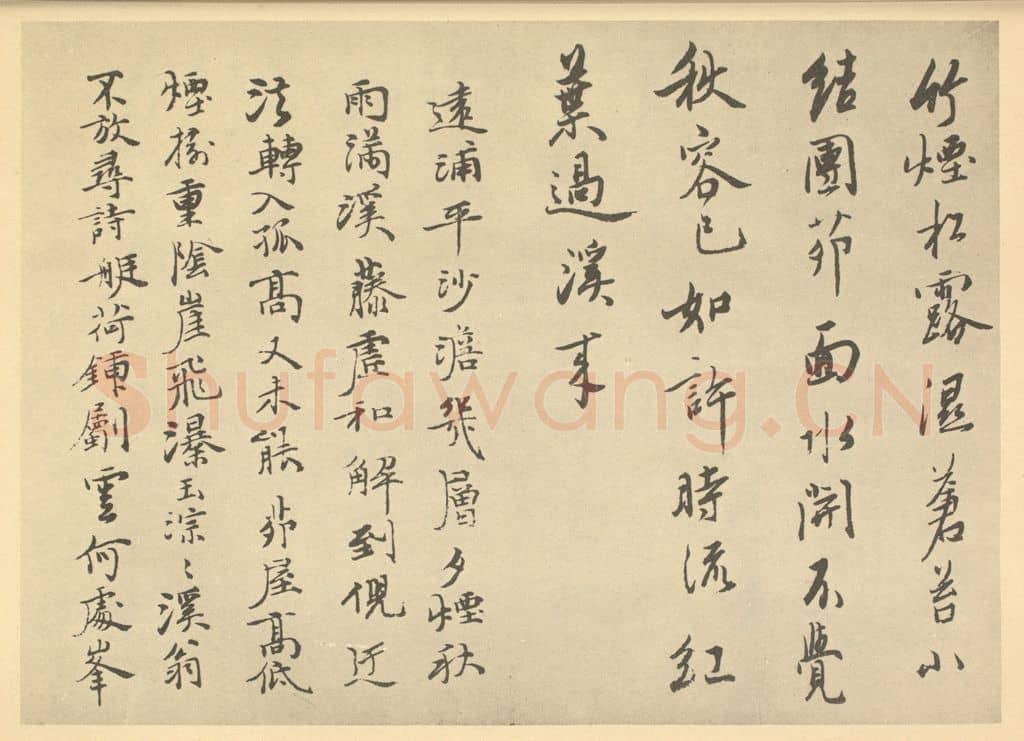 竹煙松露濕蒼苔小
結團茆面水開不覺
秋容已如許時流紅
葉過溪來
遠浦平沙澹幾層夕煙秋
雨滿溪藤虛和解到倪迂
法轉入孤高又未能茆屋高低
煙樹重陰崖飛瀑玉淙〻溪翁
不放尋詩艇荷鍤劚雲何處峯
Shufawang.CN